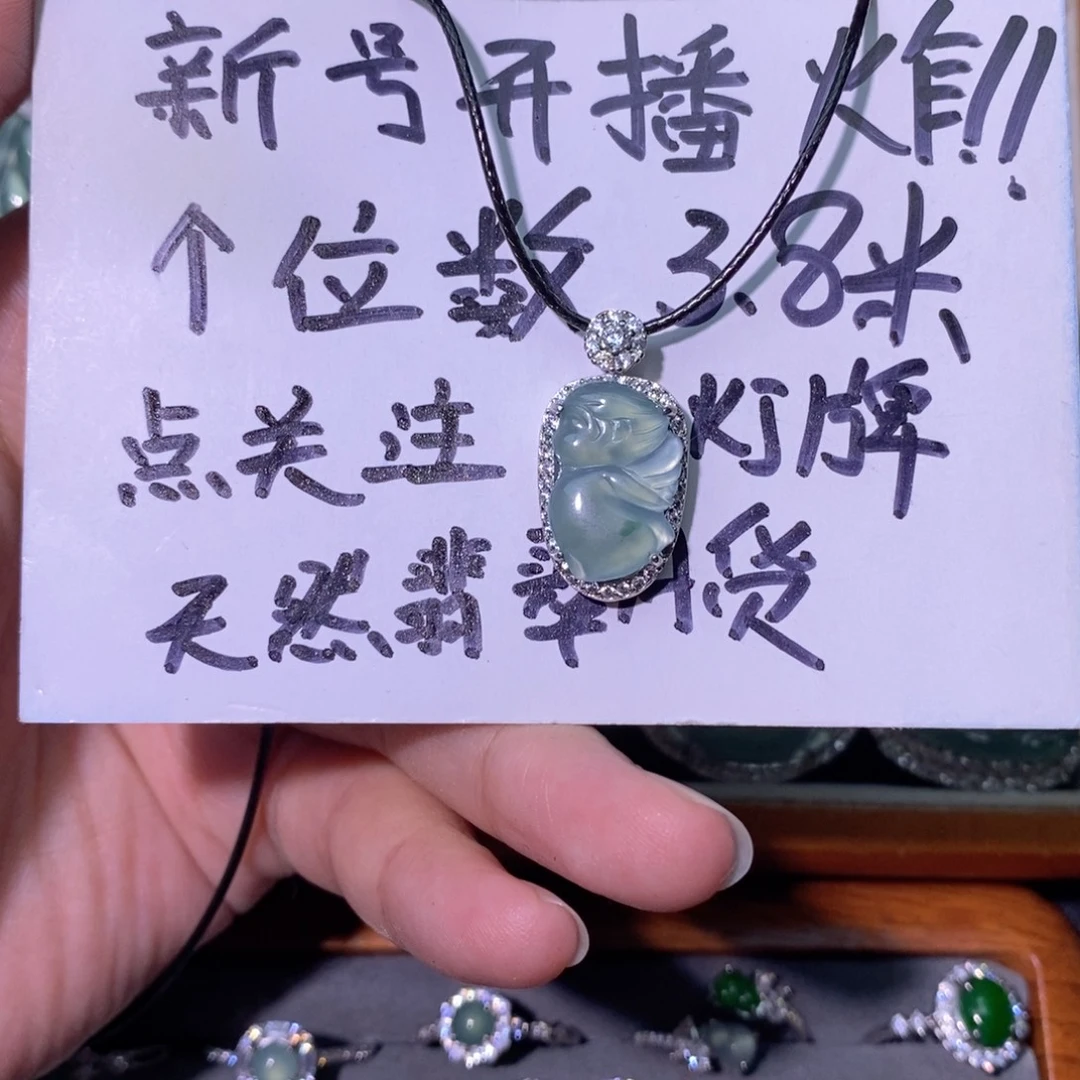 新号开播炸!!
个位数 3.8米、
点关注 灯牌
天然翡翠A货